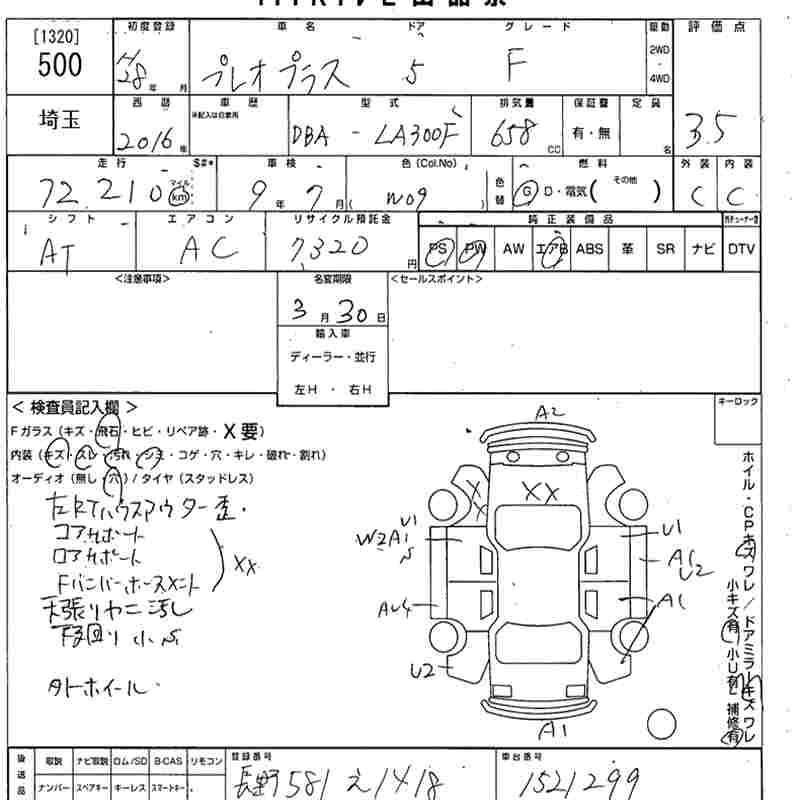 [1320] 初度登録 車名 ドア グレード 駆動 評価点
500 H28年 月 プレオプラス 5 F 2WD・4WD 3.5
埼玉 西暦 車歴 型式 排気量 保証書 定員
2016年 ※記入は自家用 DBA - LA300F 658cc 有・無 名
走行 S#* 車検 色(Col.No) 色替 燃料 外装 内装
72.210 マイル km 9年7月( W09 ) G D・電気( その他 ) C C
シフト エアコン リサイクル預託金 純正装備品
AT AC 7320円 PS PW AW エアB ABS 革 SR ナビ DTV
<注意事項> 名変期限 <セールスポイント>
3月30日
輸入車
ディーラー・並行
左H ・ 右H
< 検査員記入欄 > キーロック
Fガラス (キズ・飛石・ヒビ・リペア跡・X要)
内装 (キズ・スレ・汚れ・シミ・コゲ・穴・キレ・破れ・割れ)
オーディオ (無し・穴) / タイヤ (スタッドレス)
左RTハウスアウター歪・
コアサポート
ロアサポート XX
Fバンパーホースメント
天張りヤニ汚し
下回り小S
タトホイール
A2
X X XX
U1 W2A1 S U1
A1 U2
AU4 A1
U2
A1
ホイル・CPキズワレ/ドアミラーキズワレ
小キズ有 小U有 補修有
後送品 取説 ナビ取説 ロム/SD B-CAS リモコン 登録番号 車台番号
ナンバー スペアキー キーレス スマートキー 長野 581 え 1418 1521299